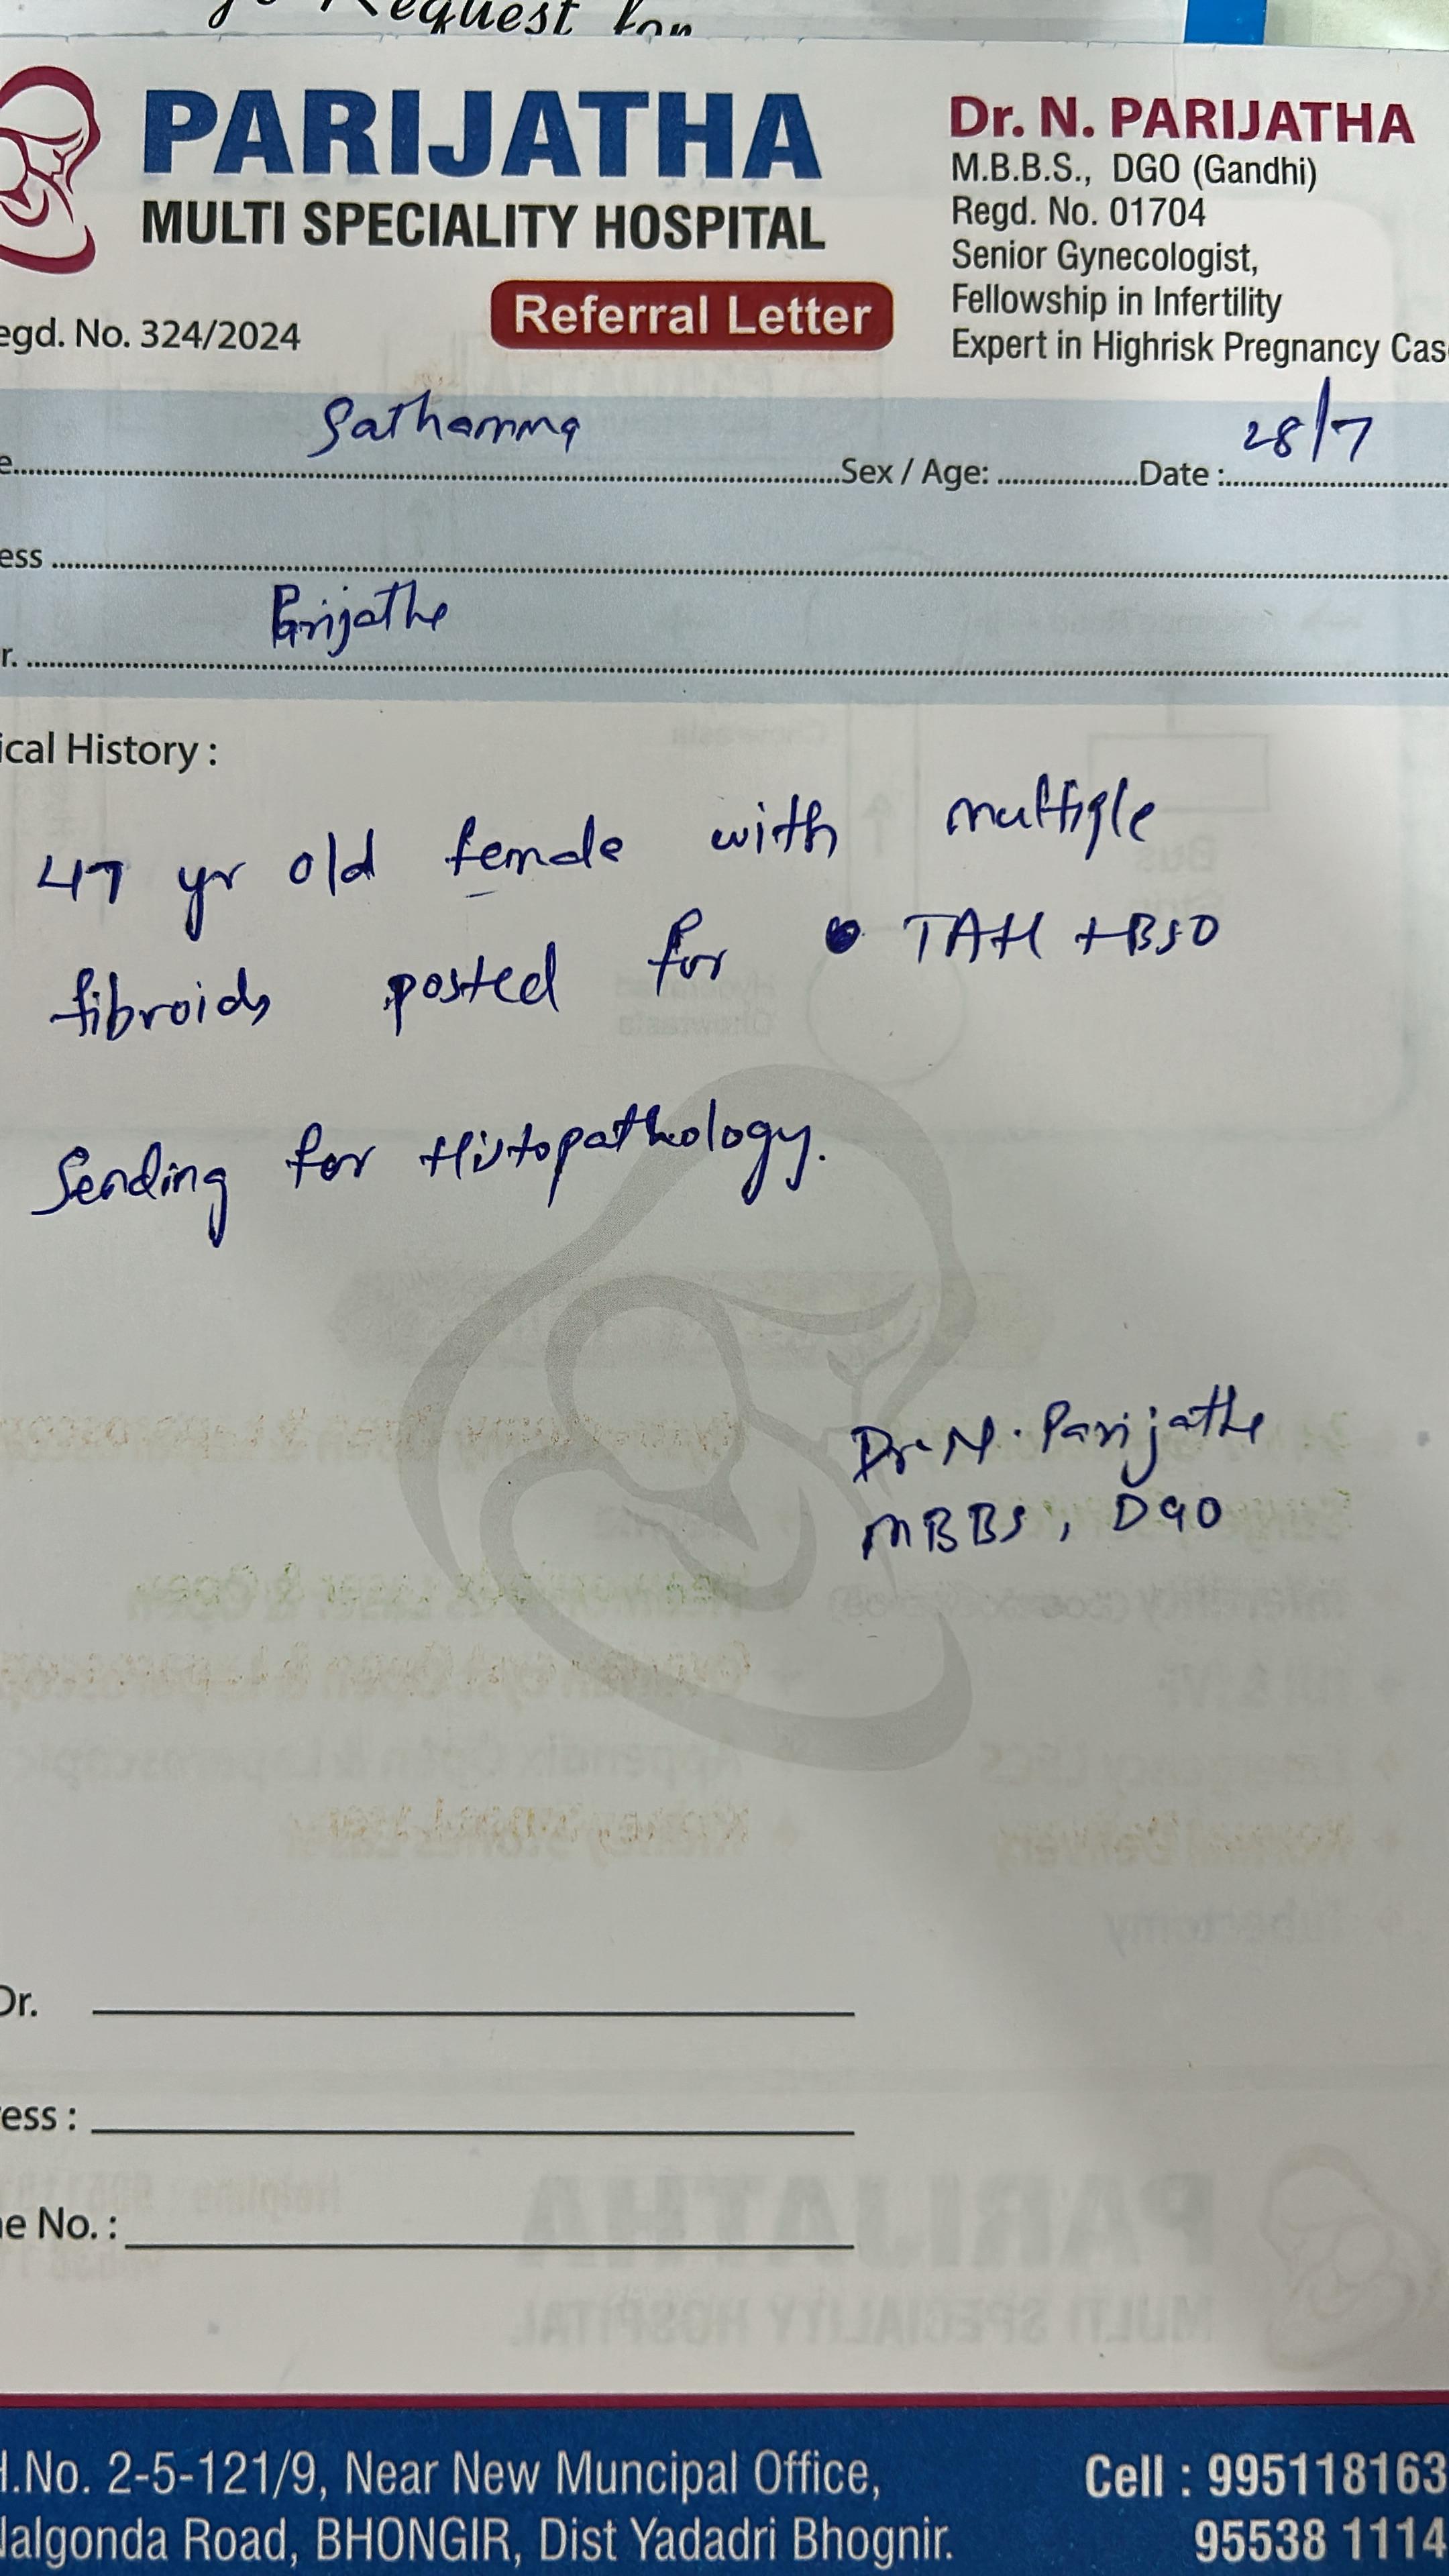 Request for
PARIJATHA
MULTI SPECIALITY HOSPITAL
Referral Letter
egd. No. 324/2024
Dr. N. PARIJATHA
M.B.B.S., DGO (Gandhi)
Regd. No. 01704
Senior Gynecologist,
Fellowship in Infertility
Expert in Highrisk Pregnancy Cas
e. Sathamma Sex / Age: Date : 28/7
ess
r. Parijatha
ical History :
47 yr old female with multiple
fibroids posted for TAH + BSO
Sending for Histopathology.
Dr. N. Parijatha
MBBS, DGO
Dr.
ess :
e No. :
H.No. 2-5-121/9, Near New Muncipal Office,
Nalgonda Road, BHONGIR, Dist Yadadri Bhognir.
Cell : 995118163
95538 1114